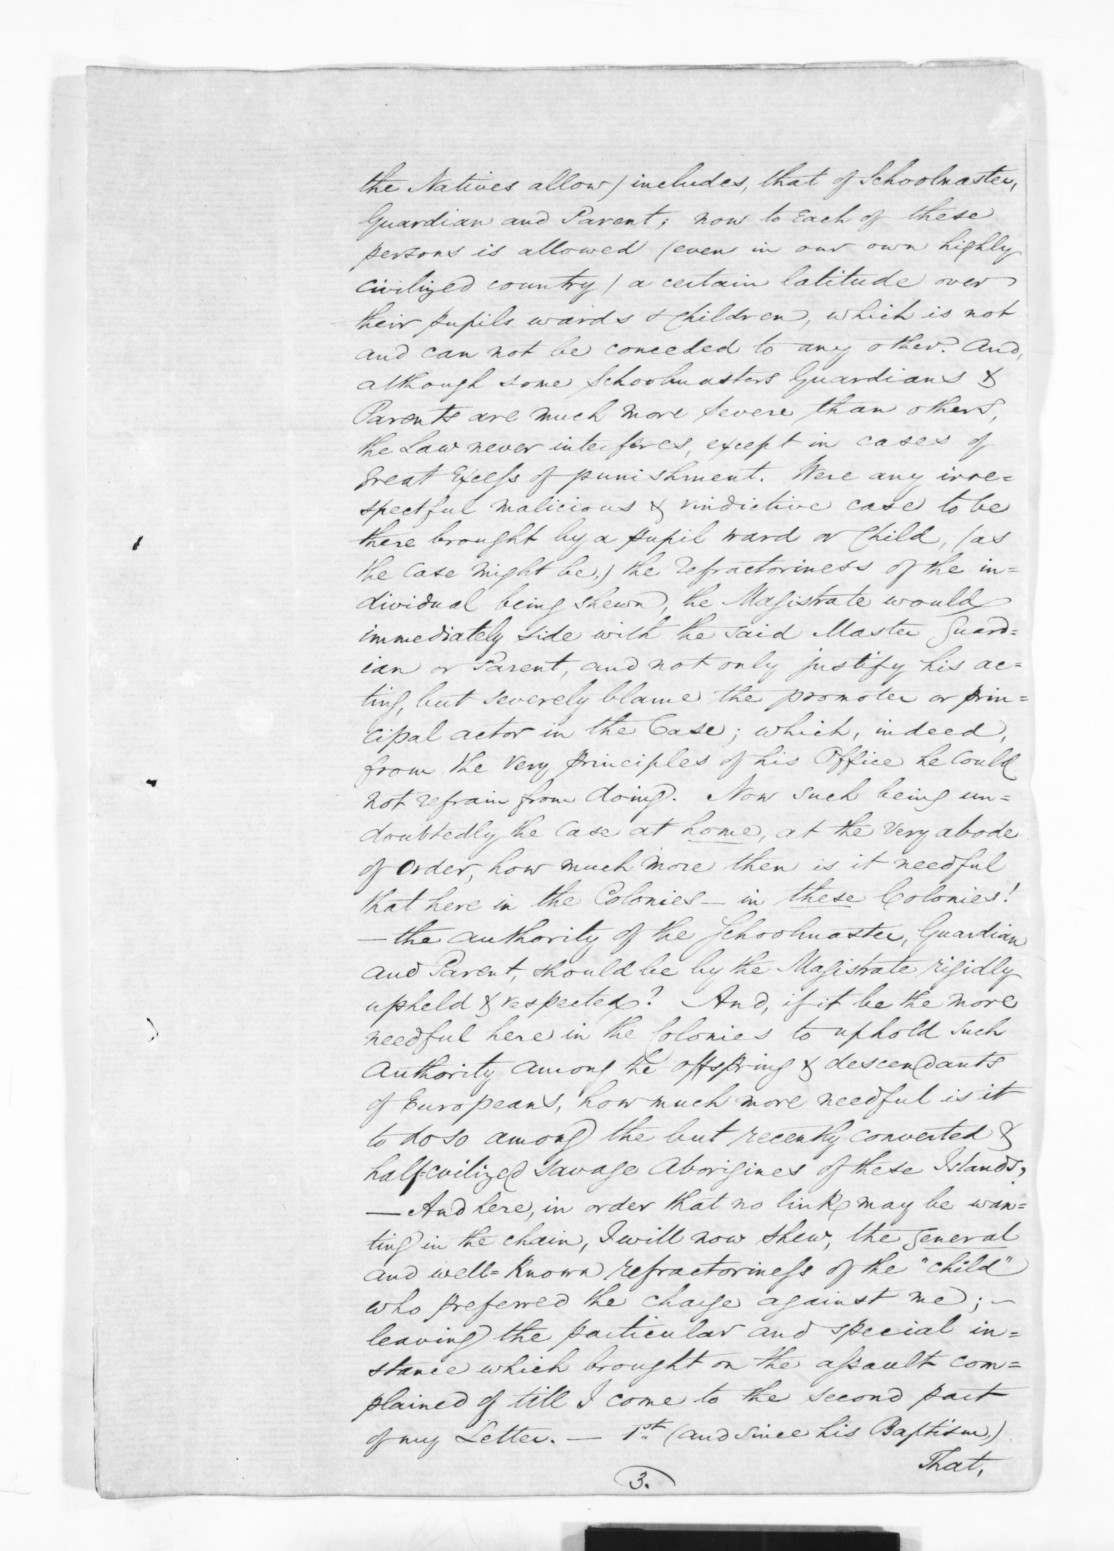 the Natives allow) includes, that of Schoolmaster,
Guardian and Parent; now to Each of these
persons is allowed (even in our own highly
civilized country) a certain latitude over
their pupils wards & Children, which is not
and can not be conceded to any other. And,
although some Schoolmasters Guardians &
Parents are much more severe than others,
the Law never interferes, except in cases of
great Excess of punishment. Were any irre=
spectful malicious & vindictive case to be
there brought by a pupil ward or Child, (as
the Case might be,) the refractoriness of the in=
dividual being shewn, the Magistrate would
immediately side with the said Master Guard=
ian or Parent, and not only justify his ac=
ting, but severely blame the promoter or prin=
cipal actor in the Case; which, indeed,
from the very principles of his Office he could
not refrain from doing. Now such being un=
doubtedly the Case at home, at the very abode
of order, how much more then is it needful
that here in the Colonies — in these Colonies!
— the authority of the Schoolmaster, Guardian
and Parent, should be by the Magistrate rigidly
upheld & respected? And, if it be the more
needful here in the Colonies to uphold such
Authority among the offspring & descendants
of Europeans, how much more needful is it
to do so among the but recently converted &
half-civilized savage Aborigines of these Islands?
— And here, in order that no link may be wan=
ting in the chain, I will now shew, the general
and well=known refractoriness of the "child"
who preferred the charge against me; —
leaving the particular and special in=
stance which brought on the assault com=
plained of till I come to the second part
of my Letter. — 1st. (and since his Baptism)
That,
3.